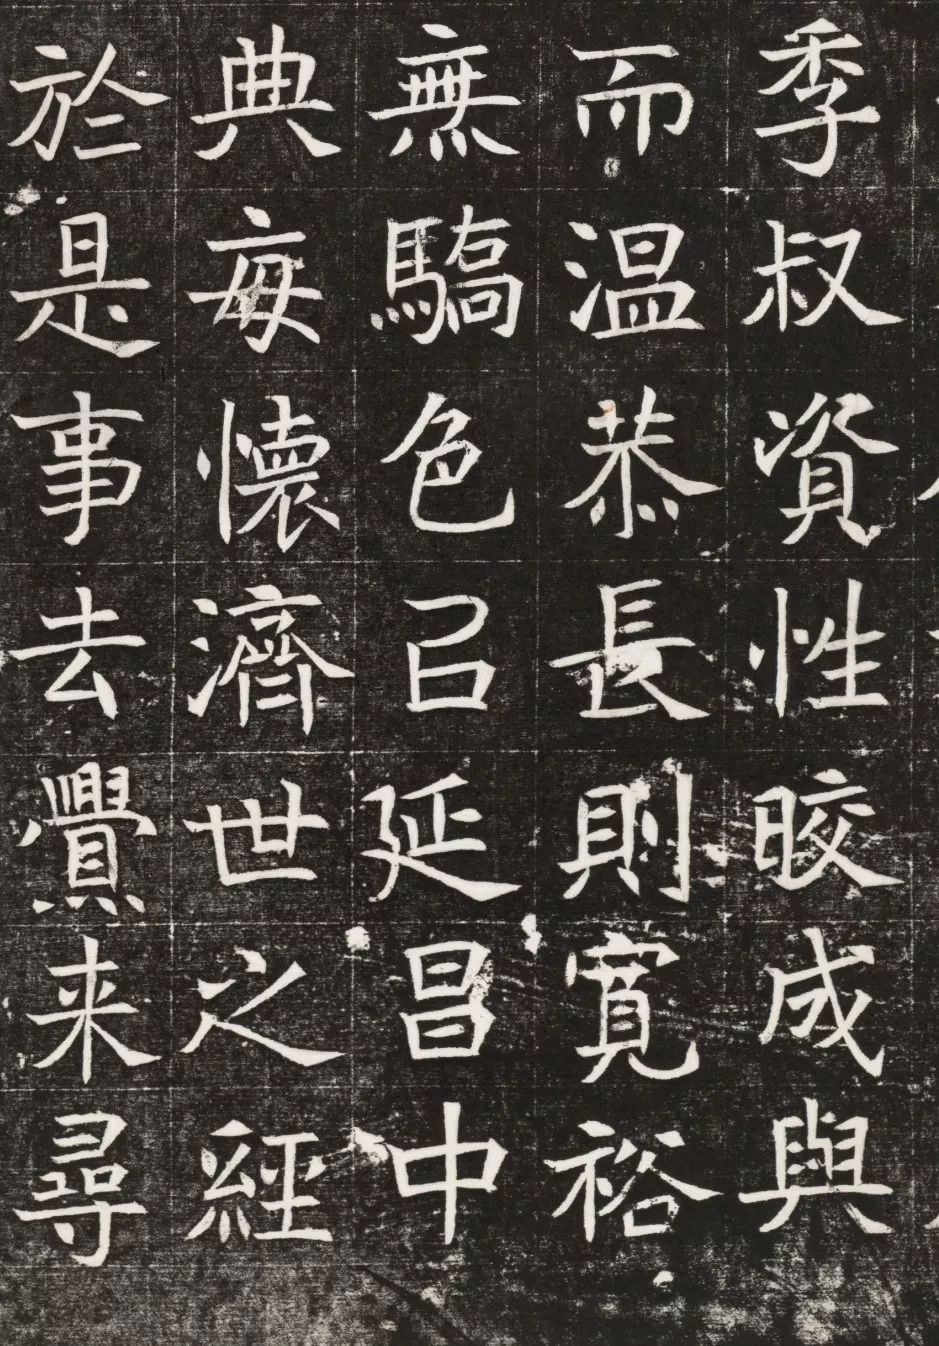 季叔資性晈成與
而温恭長則寬裕
無驕色㠯延昌中
典每懷濟世之經
於是事去釁来尋